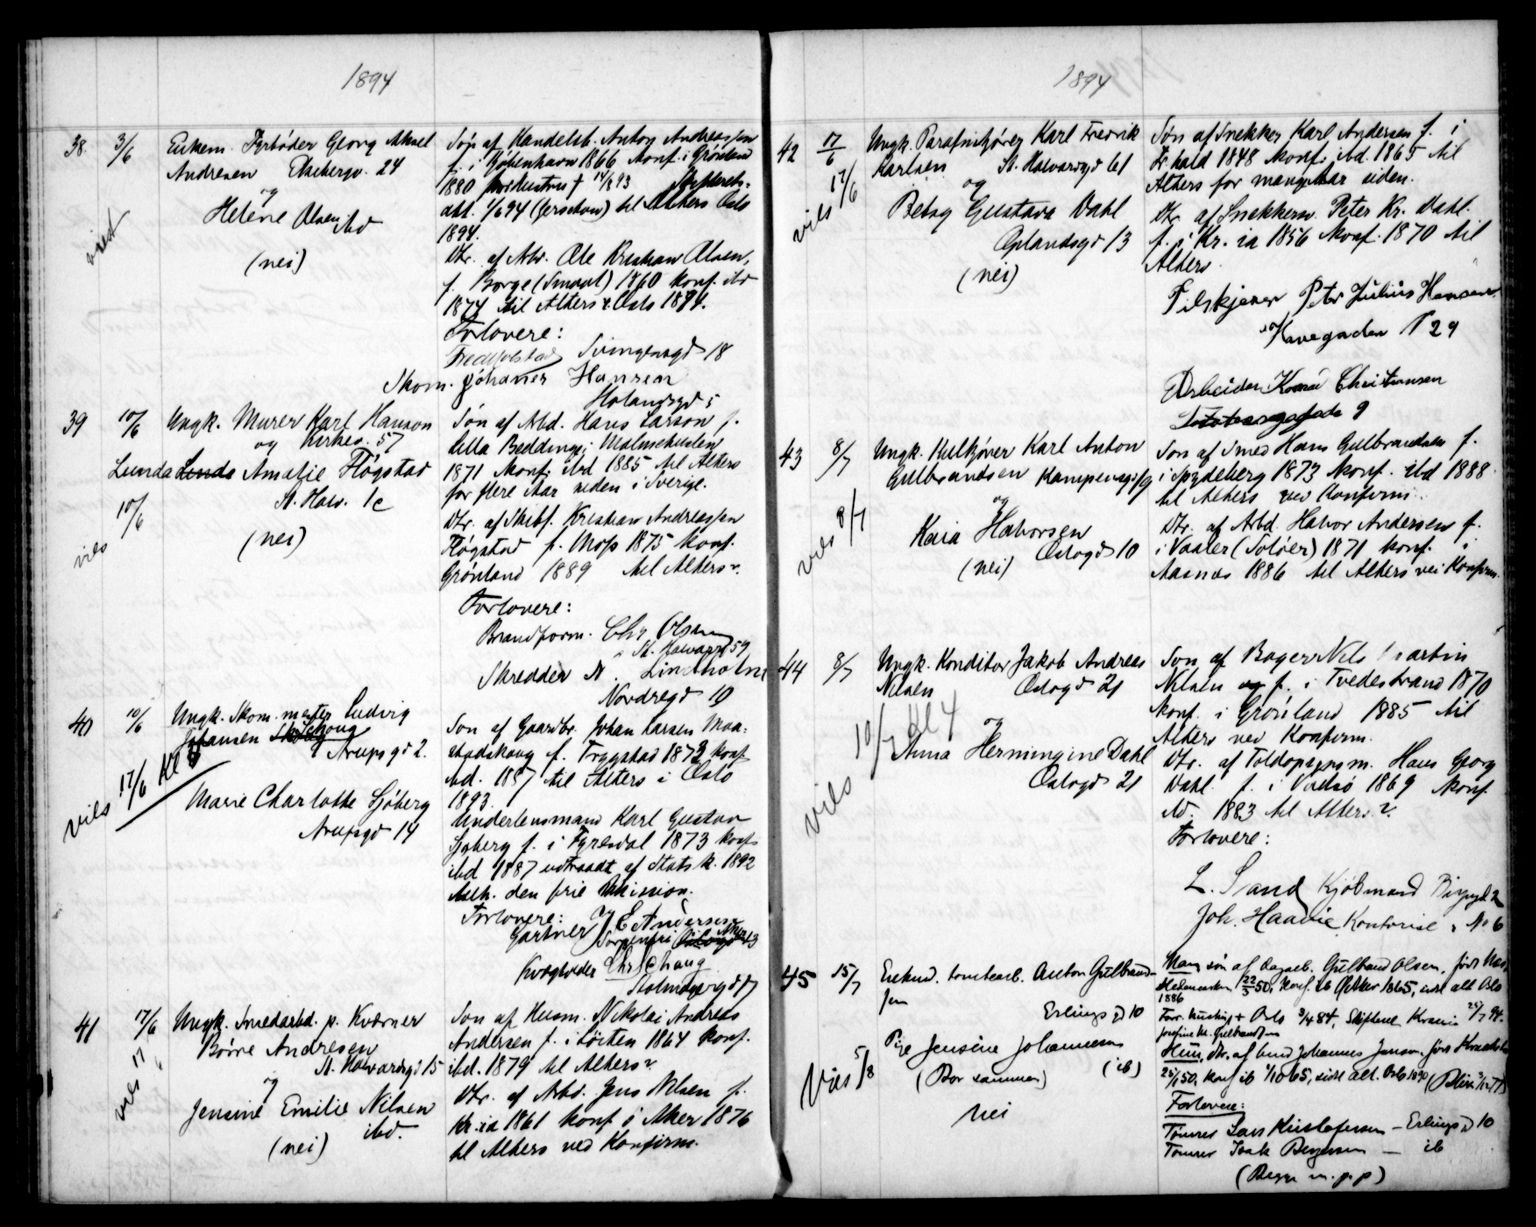 1894
38 3/6 Enkem. Fyrbøder Georg Aksel
Andresen Ekebergv. 24
og
Helene Olsen ibd
viet
(nei)
Søn af Handelsb. Anton Andreassen
f. i Kjøbenhavn 1866 Konf. i Grønland
1880 Forr. hustru † 14/8 93 Skifterets-
att. 1/6 94 til Alters Oslo
1894.
Dtr. af Arb. Ole Kristian Olsen,
f. Borge (Smaal) 1860 Konf. ibd
1874 til Alters Oslo 1894.
Forlovere:
Svingensgd 18
Skom. Johanes Hansen
Holandsgd 5
39 10/6 Ungk. Murer Karl Hanson
og Kirkeg. 57
Lunda Linda Amalie Fløgstad
St. Halv. 1c
10/6
vies
(nei)
Søn af Arbd. Hans Larson f.
Lilla Beddinge, Malmøhuslen
1871 Konf. ibd 1885 til Alters
for flere Aar siden i Sverige.
Dtr. af Skibsf. Kristian Andreassen
Fløgstad f. Moss 1875 Konf.
Grønland 1889 til Alters v.
Forlovere:
Brandform. Chr. Olsen
St. Halvardgd 59
Skredder N. Lindholm
Nordregd 19
40 10/6 Ungk. Skom. mester Ludvig
Johansen Skoug
Arupsgd 2.
vies 17/6 Kl 5
Marie Charlotte Sjøberg
Arupsgd 14
Søn af Gaardbr. Johan Larsen Moa-
stadskoug f. Trygstad 1873 konf
ibd. 1887 til Alters i Oslo
1893
Underlensmand Karl Gustav
Sjøberg f. i Fyresdal 1873 konf
ibd 1887 udtraadt af Stats k. 1892
Medl. den frie Mission.
Forlovere: E. Andersen
Gartner
Chr. Schoug
41 17/6 Ungk. Smedarbd. p. Kværner
Børre Andresen
St. Halvardsgd 15
og
Jensine Emilie Nilsen
ibd.
vies 17/6
(nei)
Søn af Husm. Nikolai Andreas
Andersen f. i Løiten 1864 konf.
ibd. 1879 til Alters v
Dtr. af Arbd. Jens Nilsen f.
Kr.ia 1861 konf i Aker 1876
til Alters ved Konfirm.
1894
42 17/6 Ungk. Parafinkjører Karl Fredrik
Karlsen St. Halvardsgd 61
og
vies 17/6
Betsy Gustava Dahl
Oplandsgd 13
(nei)
Søn af Snekker Karl Andersen f. i
Fr.hald 1848 Konf. ibd. 1865 til
Alters for mange Aar siden.
Dtr. af Snekkersv. Peter Kr. Dahl.
f. i Kr.ia 1856 Konf. 1870 til
Alters
Filskjærer Peter Julius Hansen
Havegaden No 29
Arbeider Konrad Christiansen
9
43 8/7 Ungk. Kulkjører Karl Anton
Gulbrandsen Kampensgd 9
og
vies 8/7
Kaia Halvorsen
(nei) Oslogd 10
Søn af Smed Hans Gulbrandsen f.
i Spydeberg 1873 Konf. ibd 1888
til Alters ved Konfirm.
Dtr. af Arbd. Halvor Andersen f.
i Vaaler (Soløer) 1871 konf. i
Aasnæs 1886 til Alters ved Konfirm.
44 8/7 Ungk. Konditor Jakob Andreas
Nilsen Oslogd 21
10/7 Kl 4
og
vies
Anna Hermingine Dahl
Oslogd 21
Søn af Bager Nils Martin
Nilsen og f. i Tvedestrand 1870
Konf. i Grønland 1885 til
Alters ved Konfirm.
Dtr. af Toldopsynsm. Hans Georg
Dahl f. i Vadsø 1869 Konf
ibd. 1883 til Alters v.
Forlovere:
L. Sand Kjøbmand
Joh. Haavie Kontorist No 6
45 15/7 Enkem. Anton Gulbrand-
sen
Erlingsgd 10
vies 5/8
Pige Jensine Johannesen
(Bor sammen) (ib)
Nei
Man, søn af Gulbrand Olsen, født
Hedemarken 22/5 50, konf. ib Oktbr 1865, sidst alt. Oslo
1886
Forr. hustru † Oslo 3/4 84, Skiftebr. Krania 25/7 94.
Josefine M. Gulbrandsen
Hun, dtr. af Johannes Jensen, født
25/1 50, konf ib 1/10 65, sidst alt. Oslo 1890
Forlovere:
Tømrer Lars Kristofersen – Erlingsgd 10
Tømrer Isak Bergersen – ib
(Begge m.p.p)